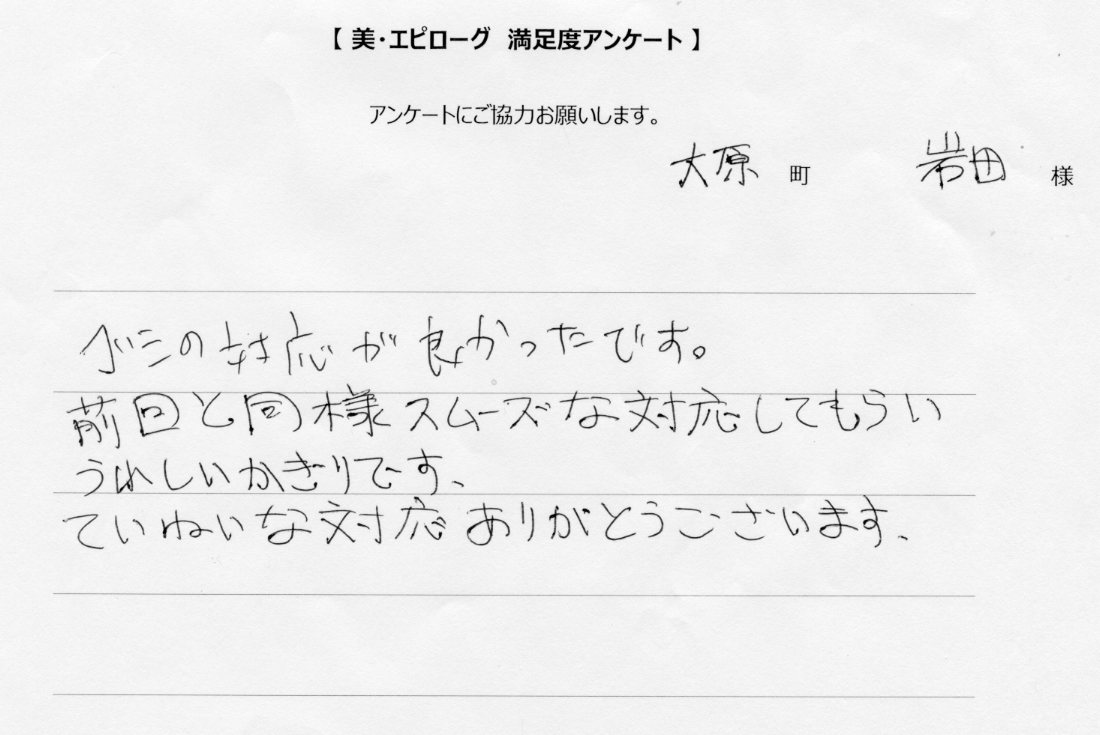 【 美・エピローグ 満足度アンケート 】
アンケートにご協力お願いします。
大原 町 岩田 様
の対応が良かったです。
前回と同様スムーズな対応してもらい
うれしいかぎりです、
ていねいな対応ありがとうございます、